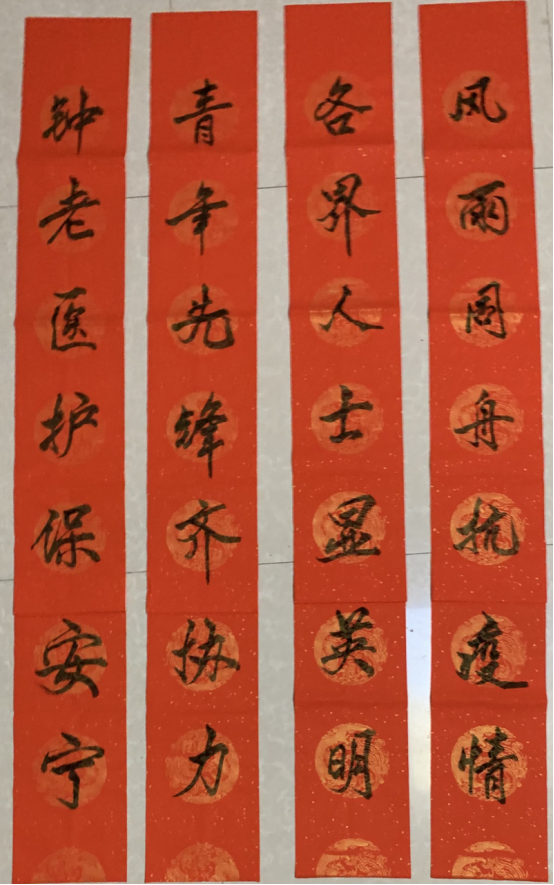 风雨同舟抗疫情
各界人士显英明
青年先锋齐协力
钟老医护保安宁